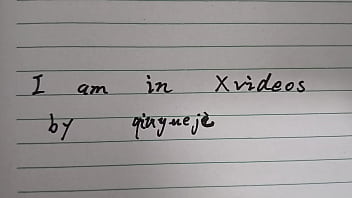 I am in Xvideos
by qinyuejie